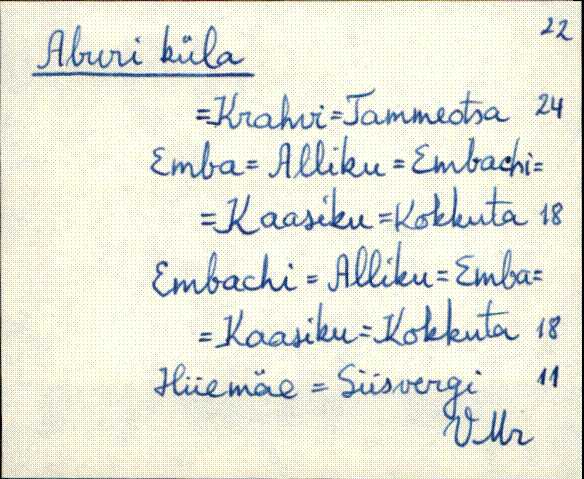 22
Aburi küla
=Krahvi=Tammeotsa 24
Emba= Alliku = Embachi=
=Kaasiku =Kokkuta 18
Embachi = Alliku= Emba=
=Kaasiku=Kokkuta 18
Hiiemäe = Siisvergi 11
VMr